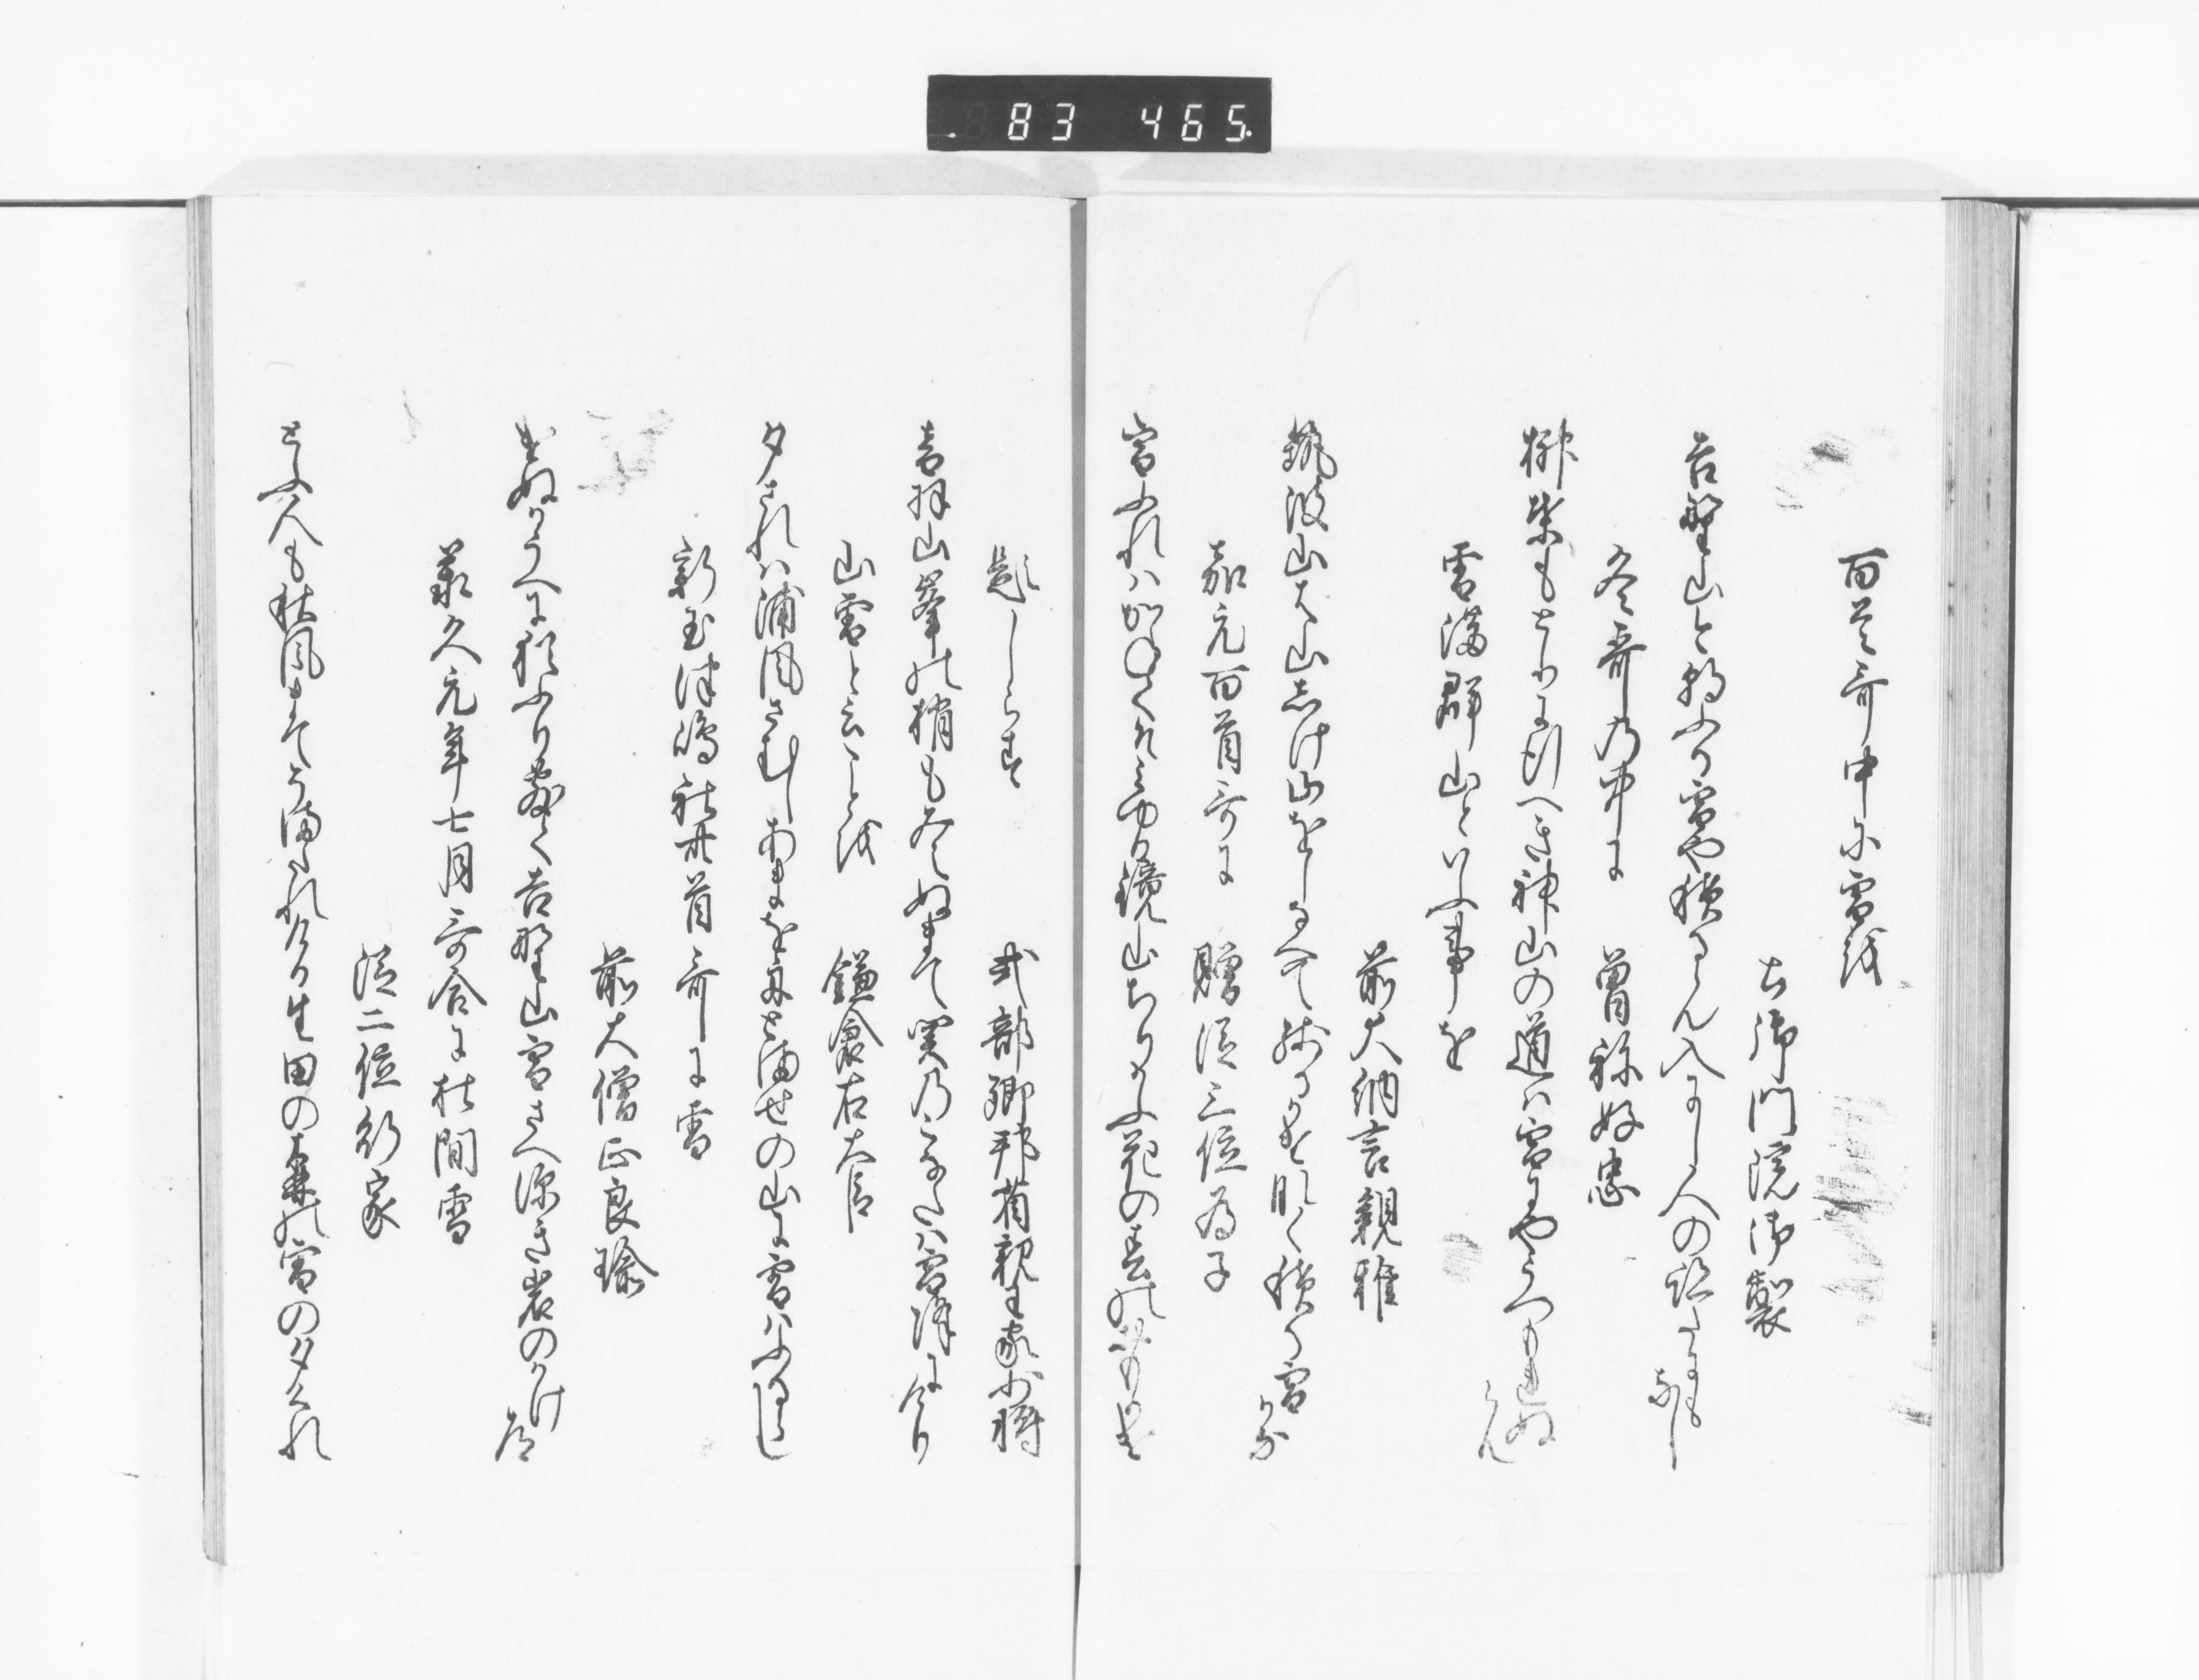 83 465
百首哥中に雪を
土御門院御製
吉野山けふふる雪や積るらん入にし人の跡たにもなし
冬哥の中に 曽祢好忠
榊葉もとりに行へき神山の道は雪にやうつもれぬらん
雪満群山といふ事を
前大納言親雅
筑波山は山しけ山をしなへて残るかたなく積る雪かな
嘉元百首哥に 贈従三位為子
雪ふれは鏡山ちりかふ花の春の
題しらす 式部卿邦省親王家少将
音羽山峯の梢も冬ぬまて関のこなたは雪降にけり
山雪と云ことを 鎌倉右大臣
夕されは浦風さむしあまを舟とませの山に雪はふるらし
新玉津嶋社卅首哥に雪
前大僧正良瑜
ぬかうへに猶ふり敷く吉野山雪さへ深き岩のかけ道
承久元年七月哥合に杜間雪
従二位行家
とふ人も秋風まてそまたれける生田の森の雪の夕くれ